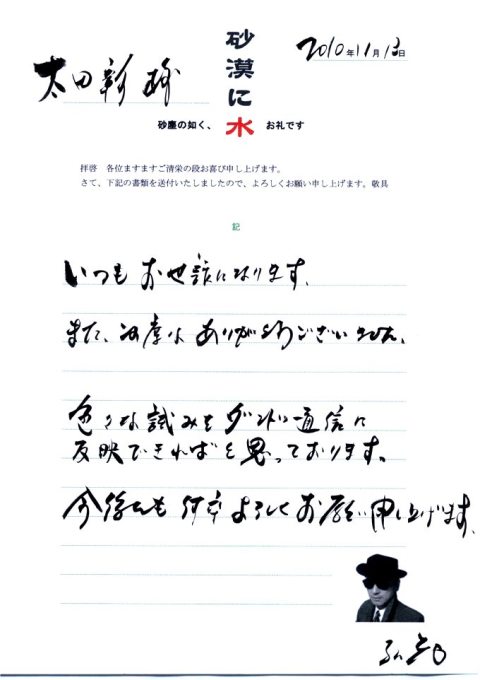 砂漠に水
2010年11月13日
太田新
砂塵の如く、
お礼です
拝啓　各位ますますご清栄の段お喜び申し上げます。
さて、下記の書類を送付いたしましたので、よろしくお願い申し上げます。敬具
記
いつもお世話になります。
また、この度はありがとうございました。
色々な試みをダントツ通信に
反映できればと思っております。
今後とも何卒よろしくお願い申し上げます。